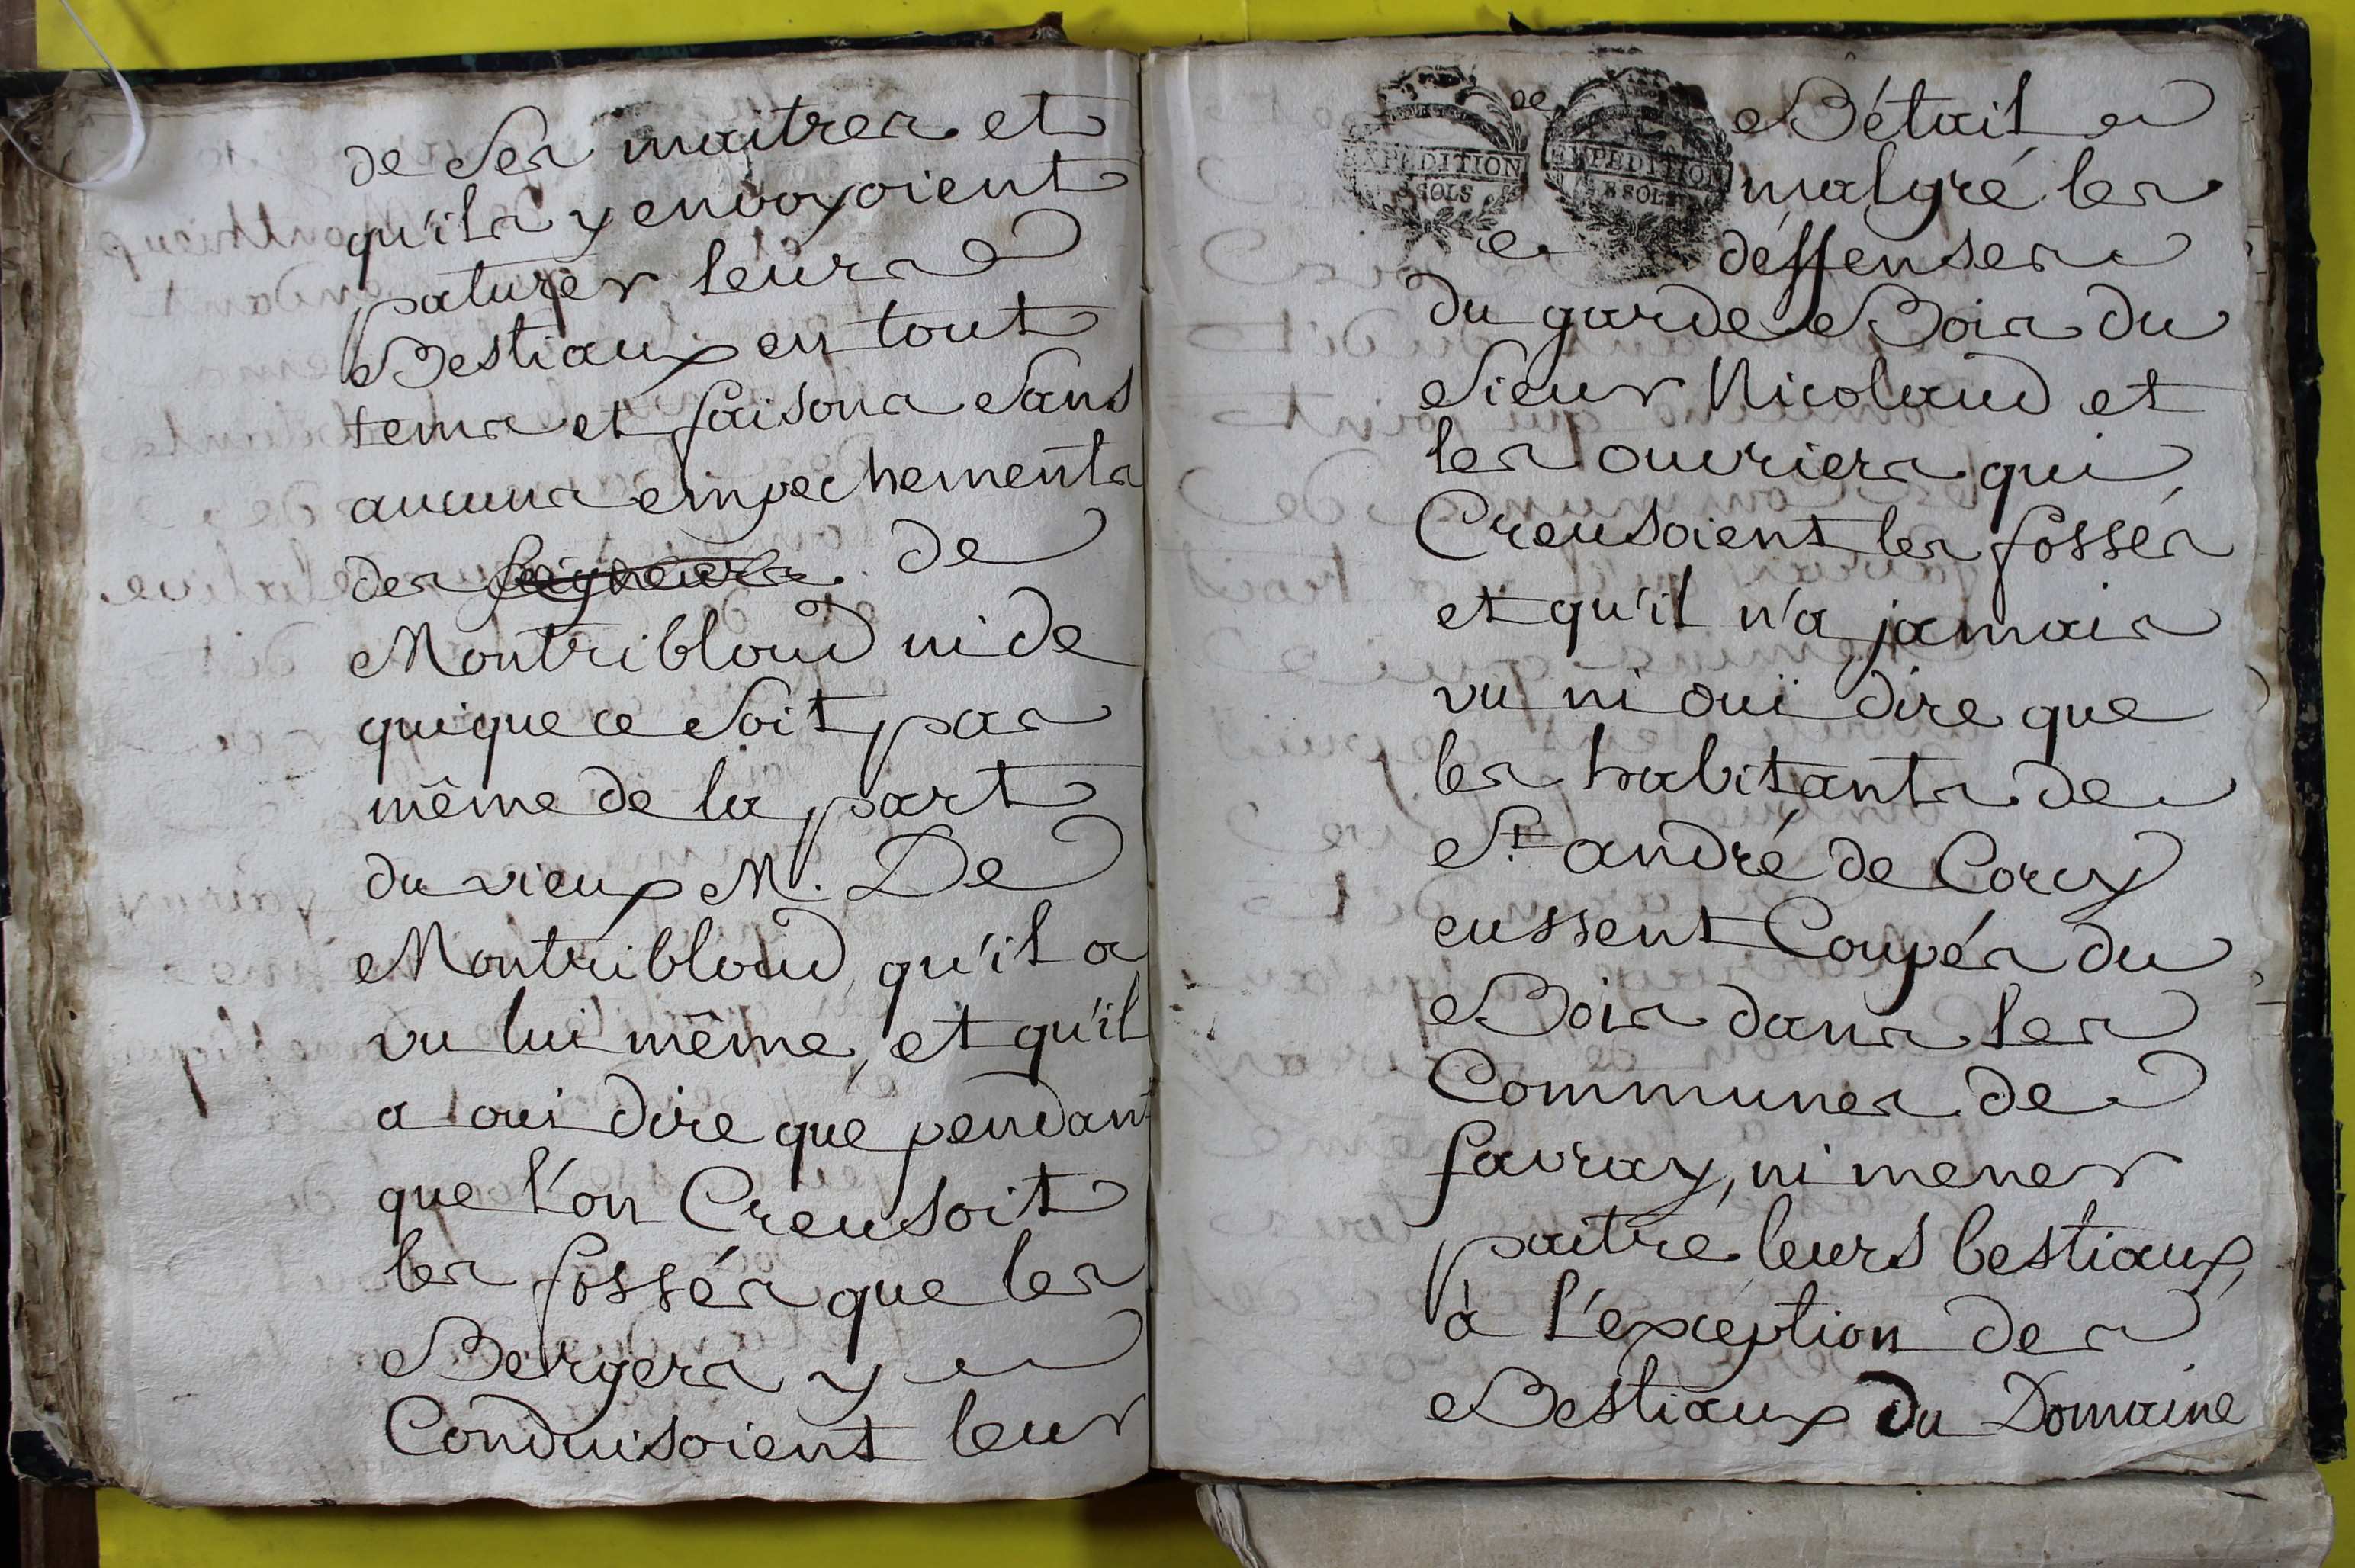 de Ses maitres et
qu'ils y envoyoient
paturer leurs
Bestiaux en tout
tems et saisons Sans
aucuns empechements
des seigneurs de
Montribloud ni de
quique ce Soit pas
même de la part
du vieux M. De
Montribloud, qu'il a
vu lui même, et qu'il
a oui dire que pendant
que l'on Creusoit
les fossés que les
Bergers y
Conduisoient leur
Bétail
EXPEDITION
8 SOLS
EXPEDITION
8 SOLS
malgré les
déffenses
du garde Bois du
Sieur Nicolaud et
les ouvriers qui
Creusoient les fossés
et qu'il n'a jamais
vu ni ouï dire que
les habitants de
St andré de Corcy
eussent Coupés du
Bois dans les
Communes de
favray, ni mener
paitre leurs bestiaux,
à l'exception des
Bestiaux du Domaine